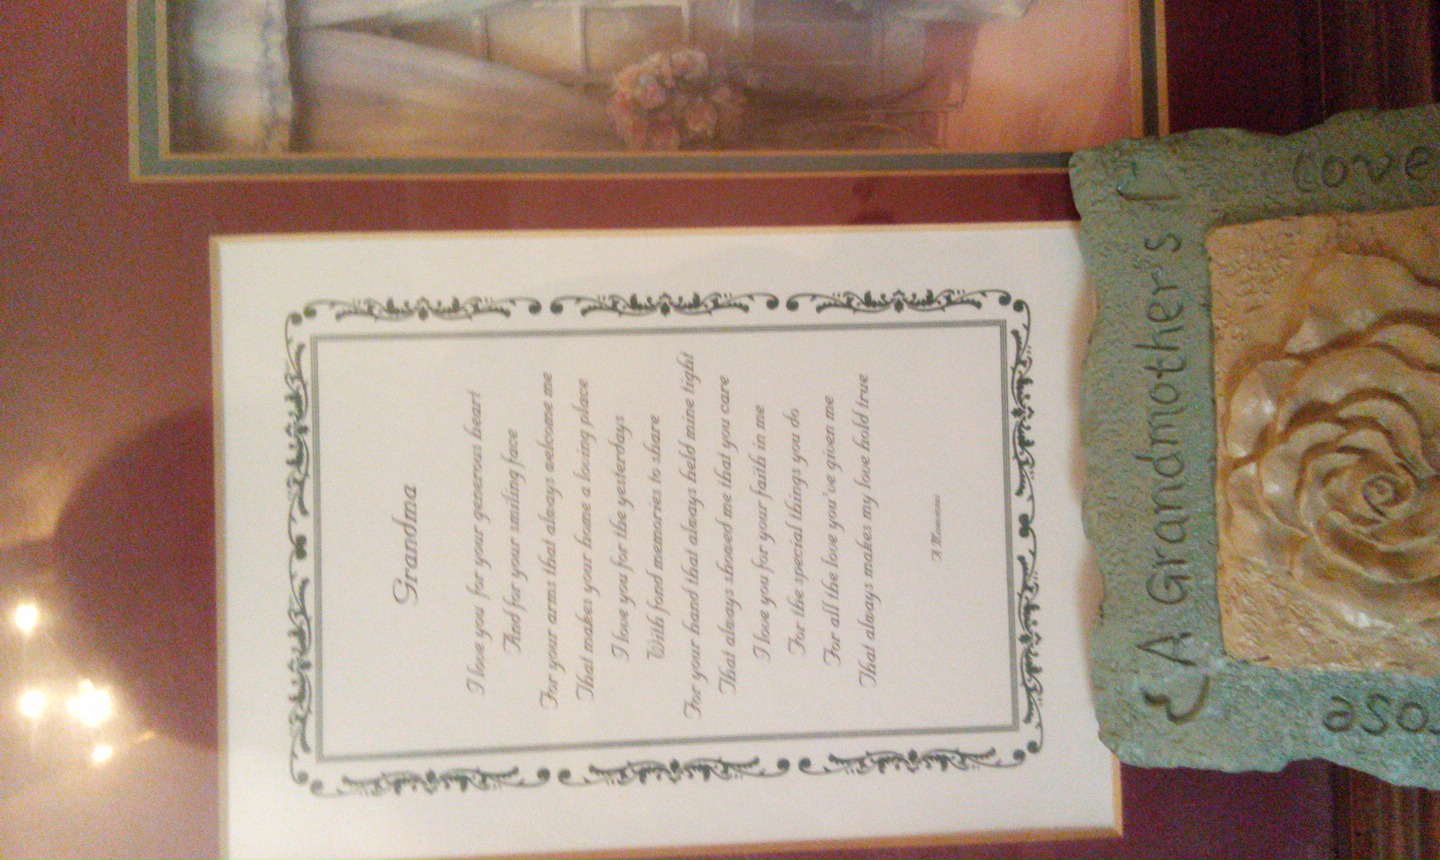 Grandma
I love you for your generous heart
And for your smiling face
For your arms that always welcome me
That makes your home a loving place
I love you for the yesterdays
With fond memories to share
For your hand that always held mine tight
That always showed me that you care
I love you for your faith in me
For the special things you do
For all the love you've given me
That always makes my love hold true
A Grandmother's
love
rose